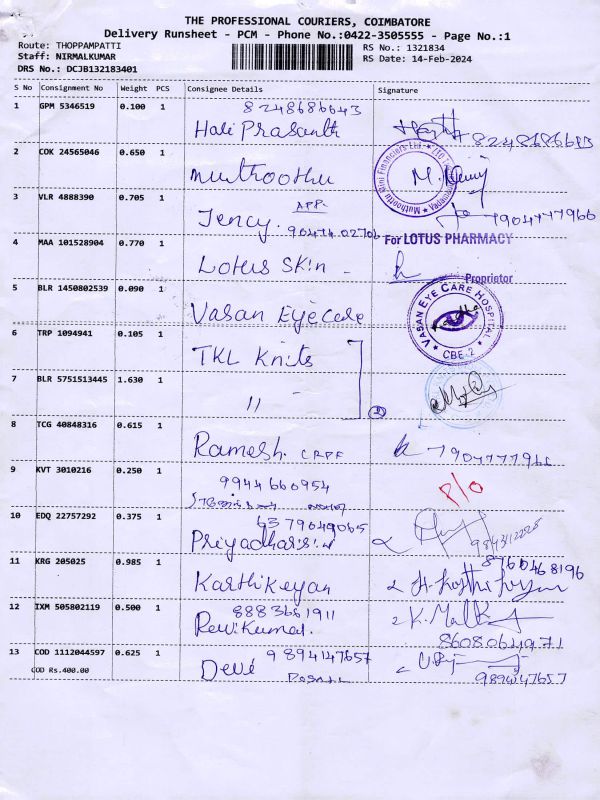 THE PROFESSIONAL COURIERS, COIMBATORE
Delivery Runsheet - PCM - Phone No.:0422-3505555 - Page No.:1
Route: THOPPAMPATTI
RS No.: 1321834
Staff: NIRMALKUMAR
RS Date: 14-Feb-2024
DRS No.: DCJB132183401
S No Consignment No Weight PCS Consignee Details Signature
1 GPM 5346519 0.100 1 8248686643
Hari Prasanth 8248686613
2 COK 24565046 0.650 1 Muthoothu
Muthoottu Mini Financiers Ltd.
3 VLR 4888390 0.705 1 APP
Jency. 9047402706 7904777966
4 MAA 101528904 0.770 1 Lotus Skin
For LOTUS PHARMACY
Proprietor
5 BLR 1450802539 0.090 1 Vasan Eyecare
VASAN EYE CARE HOSPITAL
CBE-2
6 TRP 1094941 0.105 1 TKL Knits
7 BLR 5751513445 1.630 1 "
8 TCG 40848316 0.615 1 Ramesh. CRPF 7904777966
9 KVT 3010216 0.250 1 9944660954
P/O
10 EDQ 22757292 0.375 1 6379049065
Priyadharsini 9843112228
11 KRG 205025 0.985 1 Karthikeyan 8760468196
12 IXM 505802119 0.500 1 8883661911
Ravikumar. 8608064971
13 COD 1112044597 0.625 1 9894147657
COD Rs.400.00 Devi 9894147657